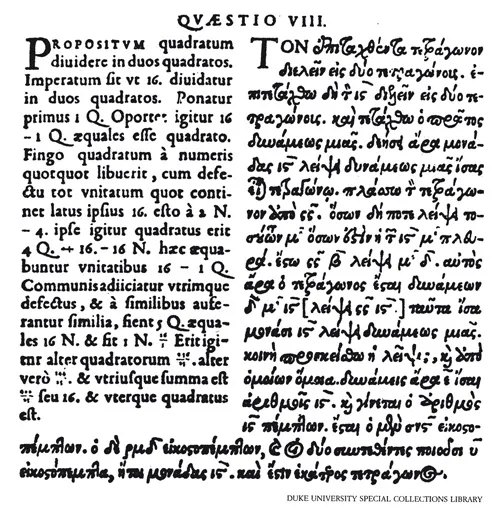 QVÆSTIO VIII.
PROPOSITVM quadratum
diuidere in duos quadratos.
Imperatum sit vt 16. diuidatur
in duos quadratos. Ponatur
primus 1 Q. Oportet igitur 16
– 1 Q. æquales esse quadrato.
Fingo quadratum à numeris
quotquot libuerit, cum defe-
ctu tot vnitatum quot conti-
net latus ipsius 16. esto à 2 N.
– 4. ipse igitur quadratus erit
4 Q. + 16. – 16 N. hæc æqua-
buntur vnitatibus 16 – 1 Q.
Communis adiiciatur vtrimque
defectus, & à similibus aufe-
rantur similia, fient 5 Q. æqua-
les 16 N. & fit 1 N. Erit igi-
tur alter quadratorum alter
verò & vtriusque summa est
seu 16. & vterque quadratus
est.
ΤΟΝ ἐπιταχθέντα τετράγωνον
διελεῖν εἰς δύο τετραγώνους. ἐ-
πιτετάχθω δὴ τὸν ιϛ διελεῖν εἰς δύο τε-
τραγώνους. καὶ τετάχθω ὁ πρῶτος
δυνάμεως μιᾶς. δεήσει ἄρα μονά-
δας ιϛ λείψει δυνάμεως μιᾶς ἴσας
εἶναι τετραγώνῳ. πλάσσω τὸν τετράγω-
νον ἀπὸ ςς. ὅσων δή ποτε λείψει το-
σούτων μο ὅσων ἐστὶν ἡ τῶν ιϛ μο πλευ-
ρά. ἔστω ςς β λείψει μο δ. αὐτὸς
ἄρα ὁ τετράγωνος ἔσται δυνάμεων
δ μο ιϛ [λείψει ςς ιϛ.] ταῦτα ἴσα
μονάσι ιϛ λείψει δυνάμεως μιᾶς.
κοινὴ προσκείσθω ἡ λεῖψις, καὶ ἀπὸ
ὁμοίων ὅμοια. δυνάμεις ἄρα ε ἴσαι
ἀριθμοῖς ιϛ. καὶ γίνεται ὁ ἀριθμὸς
ιϛ πέμπτων. ἔσται ὁ μὲν σνϛ εἰκοσο-
πέμπτων. ὁ δὲ ρμδ εἰκοσοπέμπτων, καὶ οἱ δύο συντεθέντες ποιοῦσι υ
εἰκοσόπεμπτα, ἤτοι μονάδας ιϛ. καὶ ἔστιν ἑκάτερος τετράγωνος.
DUKE UNIVERSITY SPECIAL COLLECTIONS LIBRARY